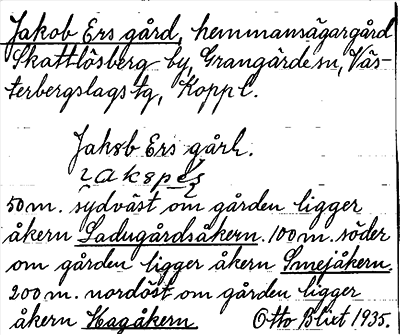 Jakob Ers gård, hemmansägargård
Skattlösberg by, Grangärde sn, Väs-
terbergslags tg, Kopp l.
Jakob Ers gård.
50 m. sydväst om gården ligger
åkern Ladugårdsåkern. 100 m. söder
om gården ligger åkern Smejåkern.
200 m. nordöst om gården ligger
åkern Hagåkern Otto Blixt 1935.